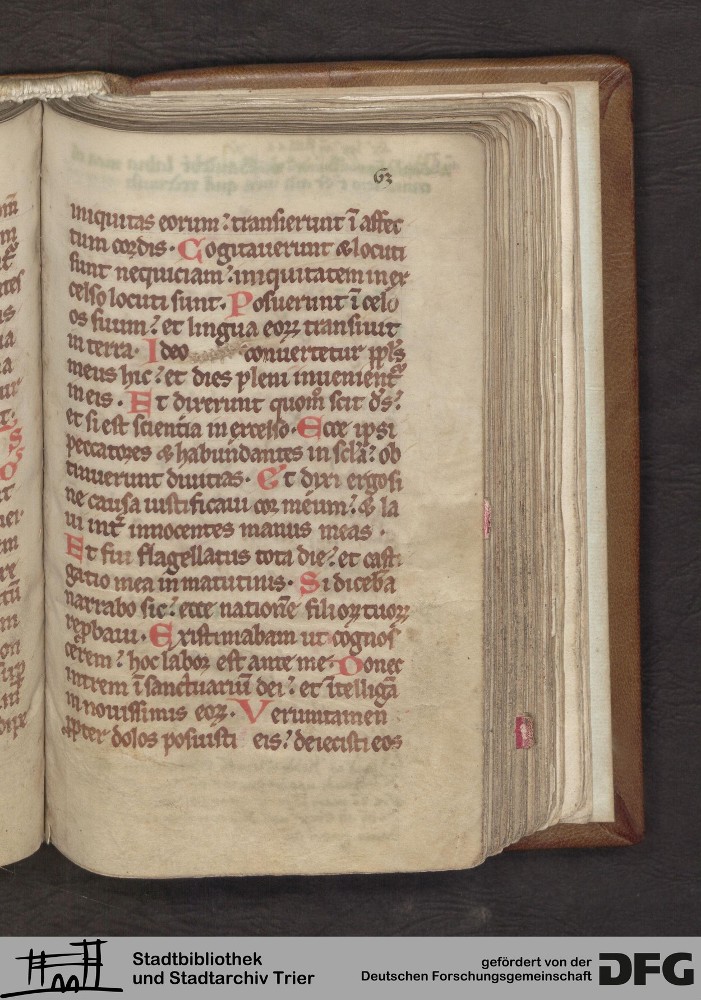 63
iniquitas eorum: transierunt ī affec
tum cordis. Cogitauerunt & locuti
sunt nequiciam: iniquitatem in ex
celso locuti sunt. Posuerunt ī celo
os suum: et lingua eorꝝ transiuit
in terra. Ideo conuertetur ppl̄s
meus hic: et dies pleni inuenient᷑
in eis. Et dixerunt quom̊ scit ds̄:
et si est scientia in excelso. Ecce ipsi
peccatores & habundantes in scl̄a: ob
tinuerunt diuitias. Et dixi ergo si
ne causa iustificaui cor meum: & la
ui int̄ innocentes manus meas.
Et fui flagellatus tota die: et casti
gatio mea in matutinis. Si diceba
narrabo sic: ecce nationē filioꝝ tuoꝝ
rep̄baui. Existimabam ut cognos
cerem: hoc labor est ante me. Donec
intrem ī sanctuariū dei: et ītelligā
in nouissimis eoꝝ. Verumtamen
ꝓpter dolos posuisti eis: deiecisti eos
Stadtbibliothek
und Stadtarchiv Trier
gefördert von der
Deutschen Forschungsgemeinschaft
DFG